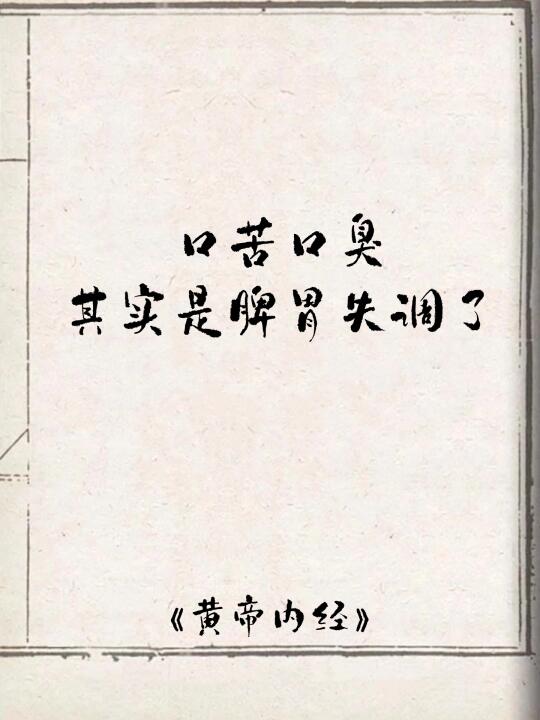 口苦口臭
其实是脾胃失调了
《黄帝内经》